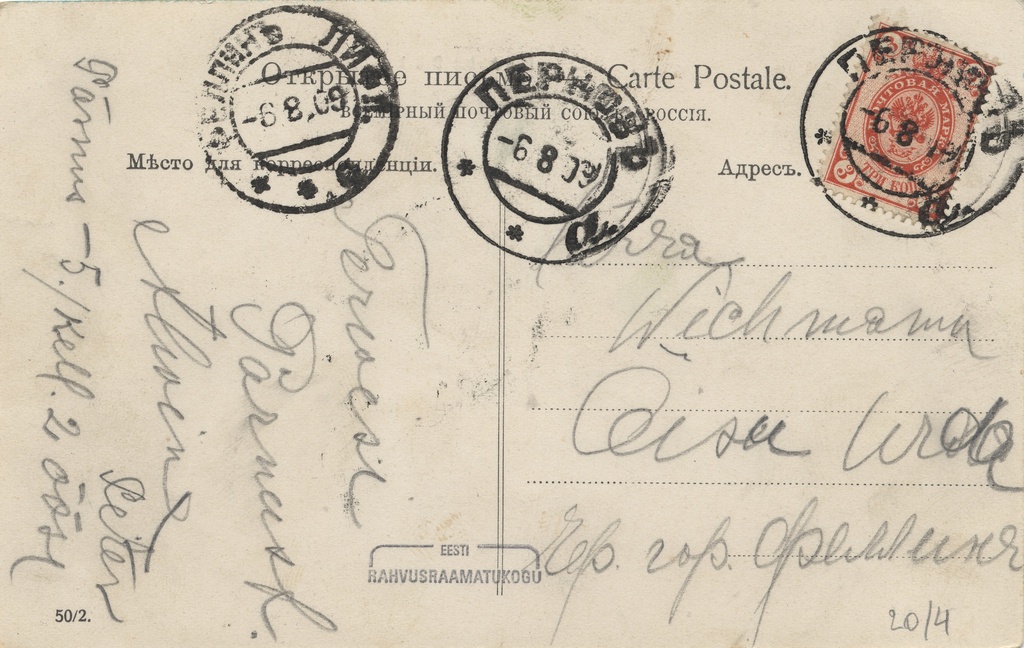 Открытое письмо. Carte Postale.
Всемірный почтовый союзъ. РОССІЯ.
Мѣсто для корреспонденціи.
Адресъ.
ФЕЛЛИНЪ ЛИФЛ.
-6.8.09
ПЕРНОВЪ
-6 8 09
а.
ПЕРНОВЪ
-6 8
а.
ПОЧТОВАЯ МАРКА
3
ТРИ КОП.
Wichmann
гор. Феллинъ
Pärnust
Alwin
Peter
Pärnus - 5./Kell. 2 öösi
EESTI
RAHVUSRAAMATUKOGU
50/2.
20/4